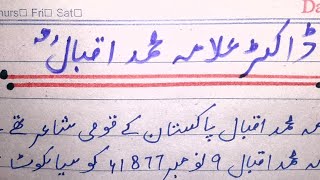 hurs□ Fri□ Sat□
Da
ڈاکٹر علامہ محمد اقبالؒ
مہ محمد اقبال پاکستان کے قومی شاعر تھے
مہ محمد اقبال 9 نومبر 1877 کو سیالکوٹ